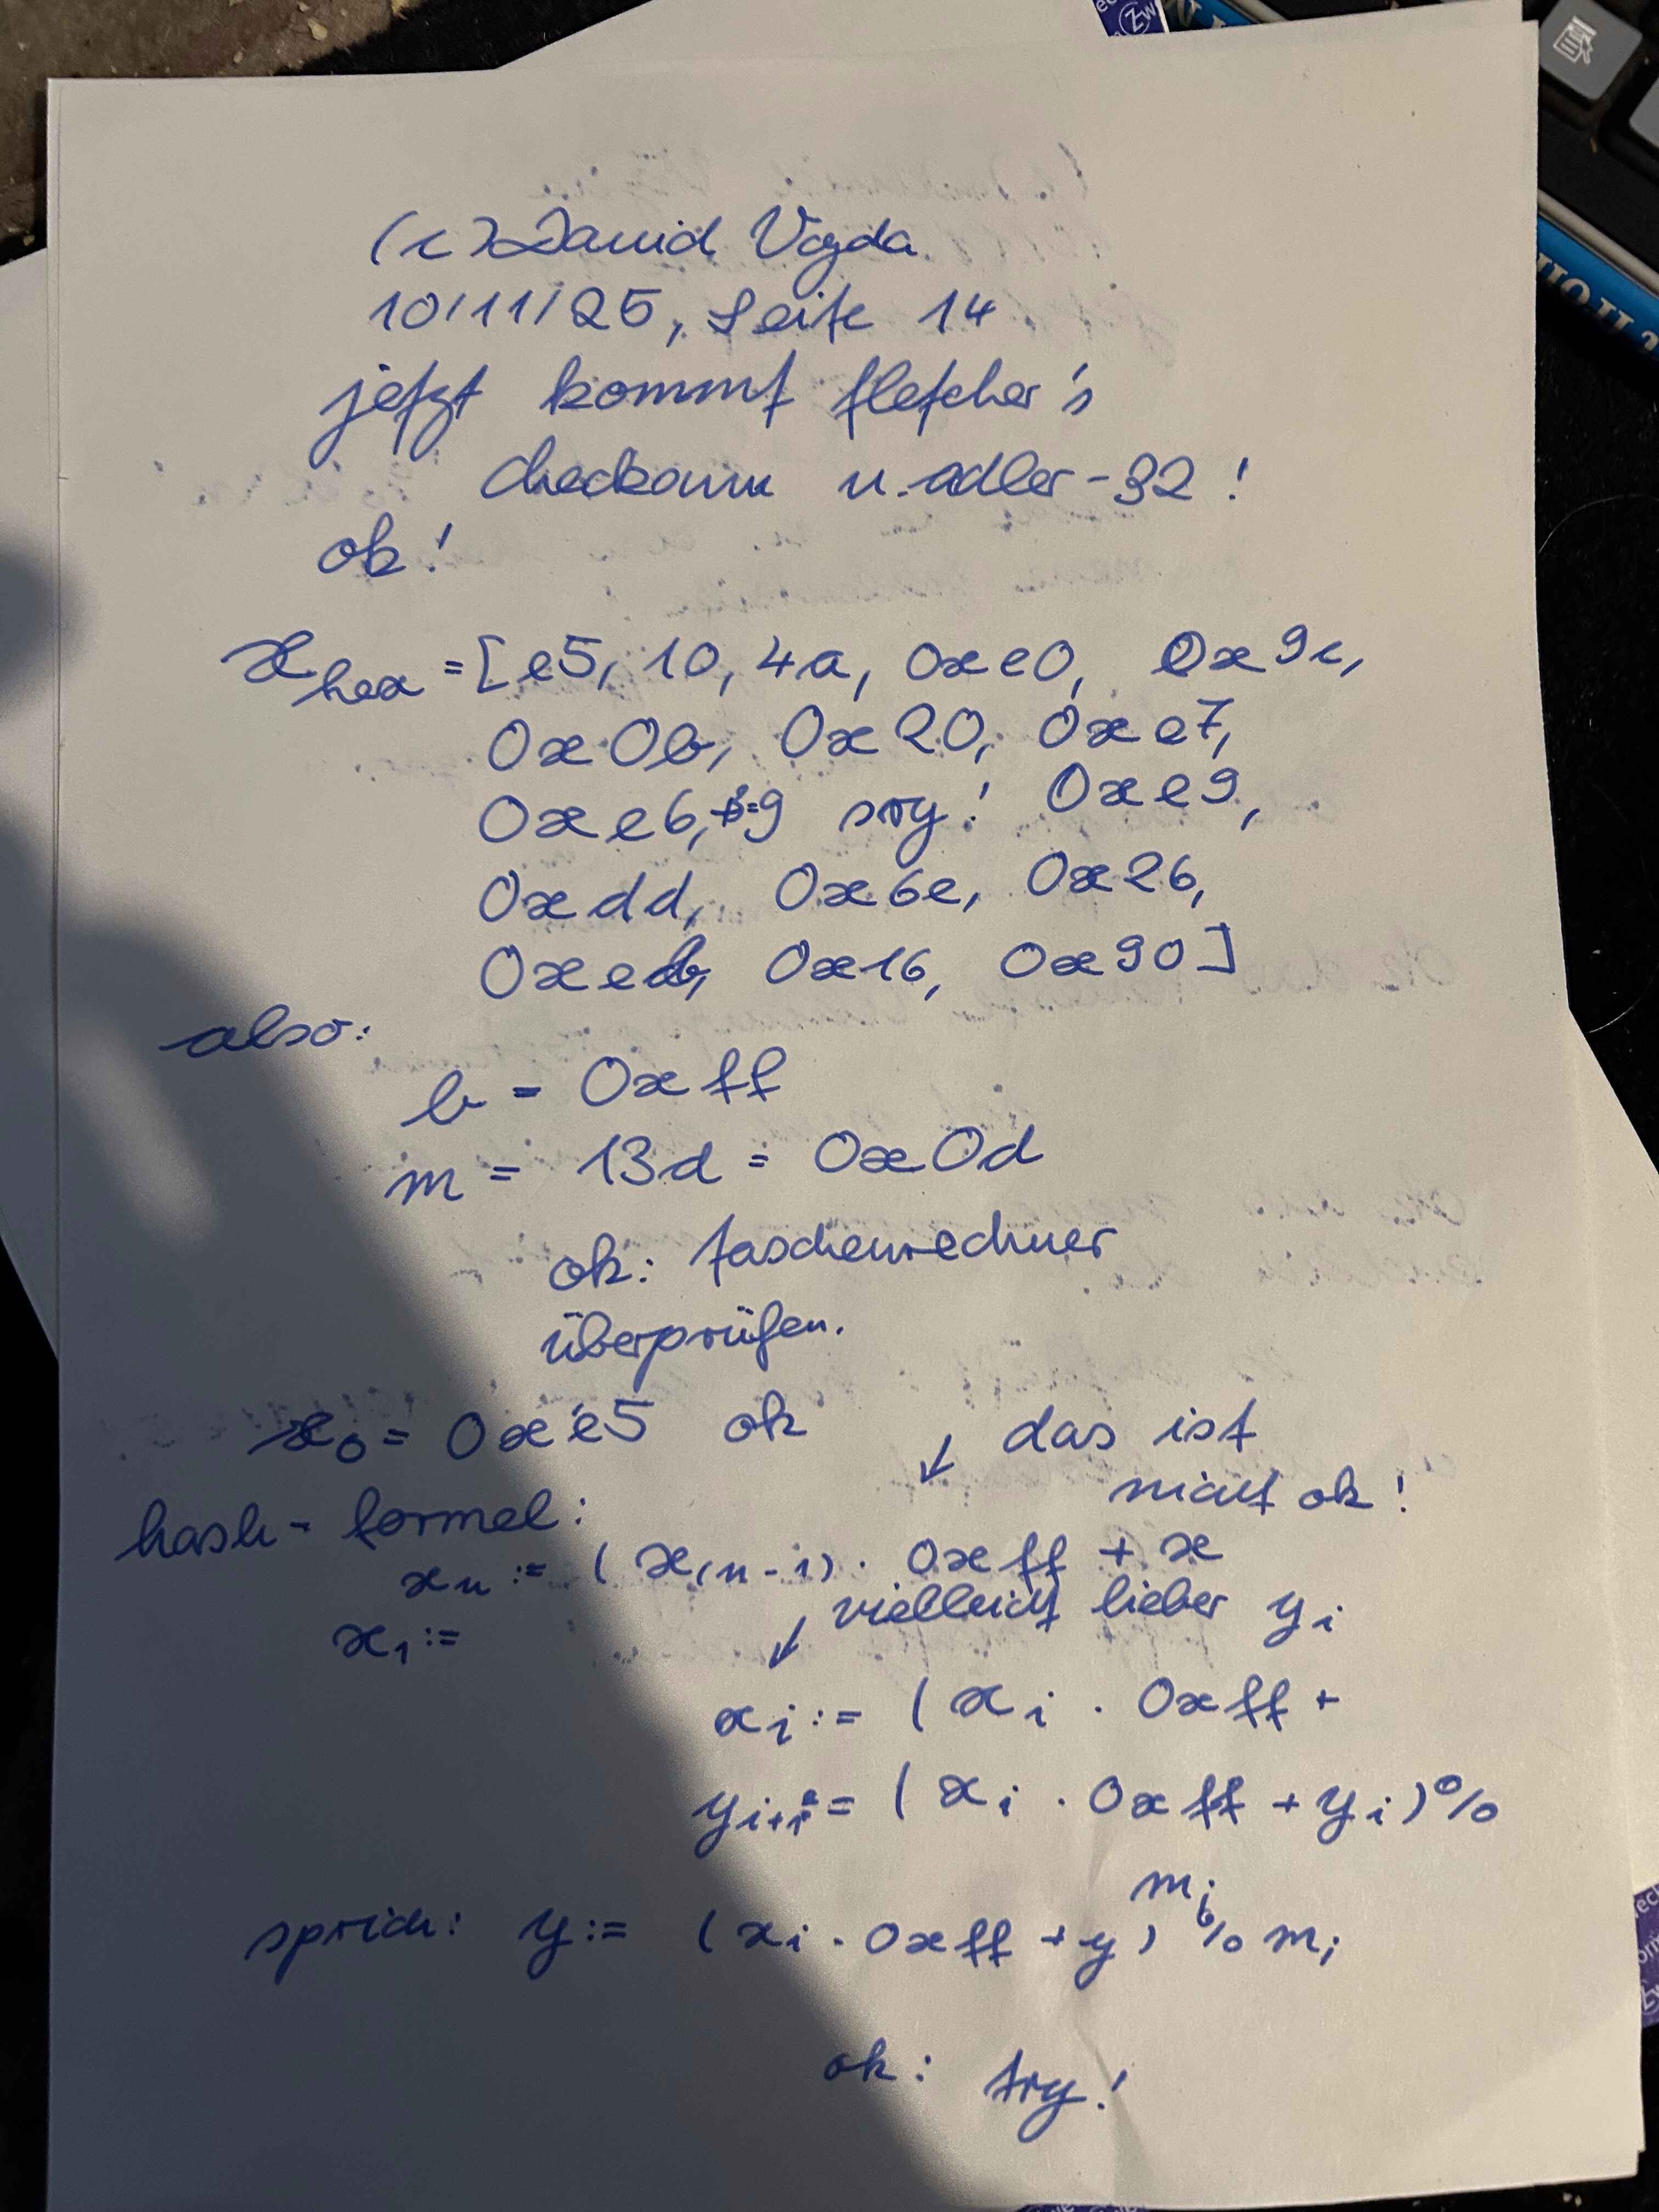 (c) David Vajda
10/11/25, Seite 14
jetzt kommt fletcher's
checksum u. adler-32!
ok!
x hex = [e5, 10, 4a, 0xe0, 0x9c,
0x0b, 0x20, 0xe7,
0xe6, sry! 0xe9,
0xdd, 0x6e, 0x26,
0xeb, 0x16, 0x90]
also:
b = 0xff
m = 13d = 0x0d
ok: taschenrechner
überprüfen.
x0 = 0xe5 ok ↓ das ist
nicht ok!
hash-formel:
xn := (x(n-1) · 0xff + x
x1 := ↓ vielleicht lieber yi
xi := (xi · 0xff +
yi+1 = (xi · 0xff + yi) %
m;
sprich: y := (xi · 0xff + y) % m;
ok: try!